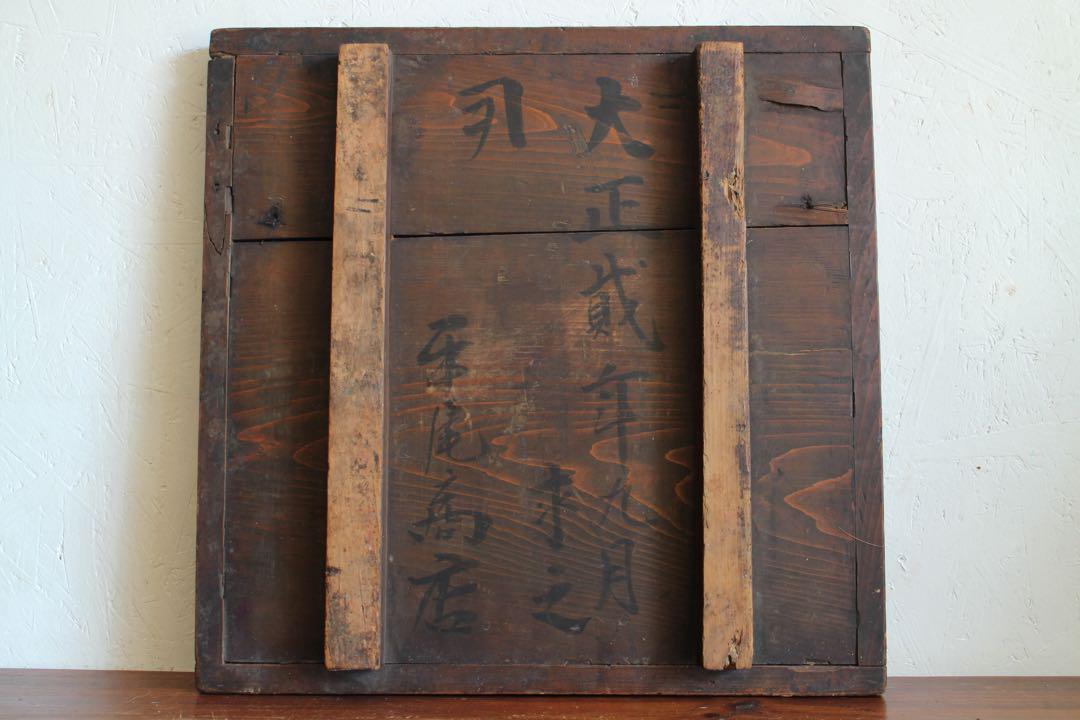 大正貳年九月
求之
平尾商店